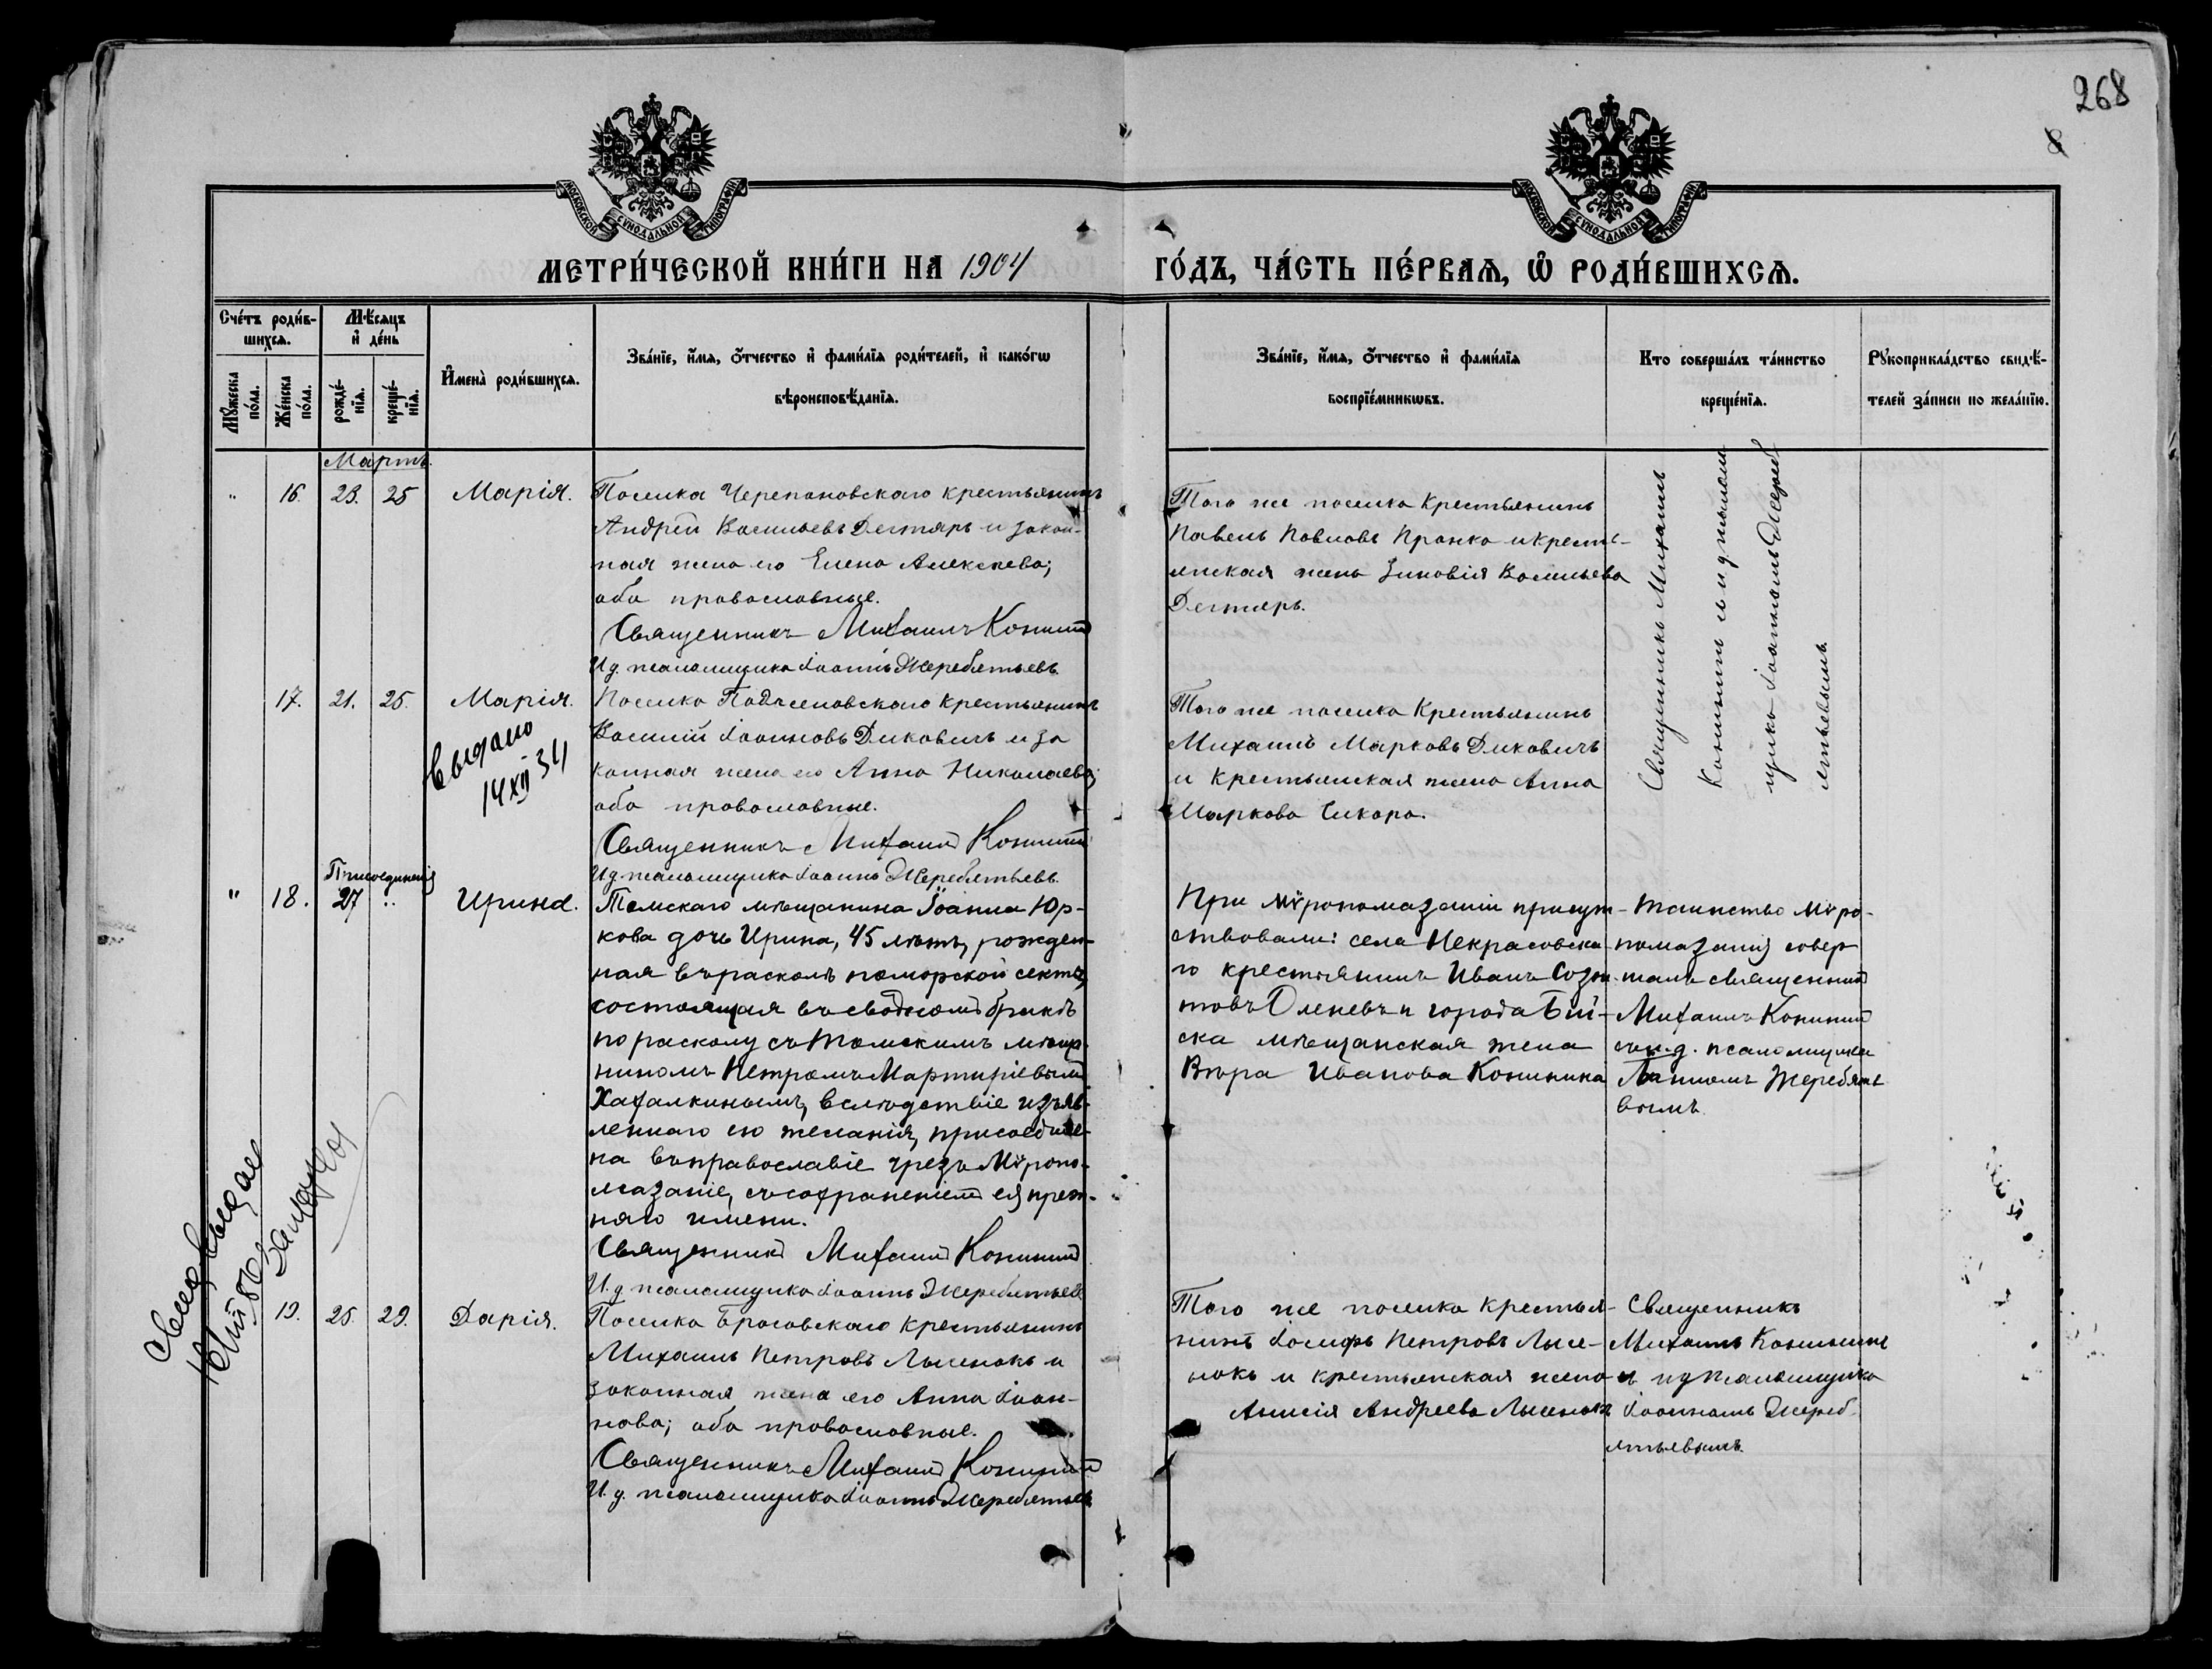 268
8
МОСКОВСКОЙ СѴНОДАЛЬНОЙ ТИПОГРАФІИ
МОСКОВСКОЙ СѴНОДАЛЬНОЙ ТИПОГРАФІИ
МЕТРИ́ЧЕСКОЙ КНИ́ГИ НА 1904
ГО́ДЪ, ЧА́СТЬ ПЕ́РВАѦ, Ѽ РОДИ́ВШИХСѦ.
Сче́тъ роди́в-
шихсѧ.
Мꙋ́жеска
по́ла.
Же́нска
по́ла.
Мѣ́сѧцъ
и҆ де́нь
рожде́-
нїѧ.
креще́-
нїѧ.
И҆мена̀ роди́вшихсѧ.
Зва́нїе, и҆́мѧ, ѻ҆́тчество и҆ фами́лїѧ роди́телей, и҆ како́гѡ
вѣроисповѣ́данїѧ.
Зва́нїе, и҆́мѧ, ѻ҆́тчество и҆ фами́лїѧ
воспрїе́мникѡвъ.
Кто соверша́лъ та́инство
креще́нїѧ.
Рꙋкоприкла́дство свидѣ́-
телей за́писи по жела́нїю.
Мартъ.
" 16. 23. 25 Марія.
Поселка Черепановскаго крестьянинъ
Андрей Васильевъ Дегтярь и закон-
ная жена его Елена Алексѣева;
оба православные.
Священникъ Михаилъ Конинин
И д. псаломщика Іоаннъ Жеребятьевъ
Того же поселка крестьянинъ
Павелъ Павловъ Пронко и кресть-
янская жена Зиновія Васильева
Дегтярь.
Священникъ Михаилъ
Конининъ и и д псаломщ
щика Іоанномъ Жереб
ятьевымъ
17. 21. 25. Марія.
Выдано
14 XII 34
Поселка крестьянинъ
Василій Іоанновъ Диковичъ и за
конная жена его Анна Николаева;
оба православные.
Священникъ Михаилъ Конинин
И д псаломщика Іоаннъ Жеребятьевъ.
Того же поселка крестьянинъ
Михаилъ Марковъ Диковичъ
и крестьянская жена Анна
Маркова Сикора.
Присоединенія
" 18. 27 " Ирина.
Томскаго мѣщанина Іоанна Юр-
кова дочь Ирина, 45 лѣтъ, рожден-
ная въ расколѣ поморской секты,
состоящая въ сводномъ бракѣ
по расколу съ Томскимъ мѣща-
ниномъ Петромъ Мартиріевымъ
Хахалкинымъ, вслѣдствіе изъяв-
леннаго ею желанія, присоедине-
на въ православіе чрезъ Мѵропо-
мазаніе, съ сохраненіемъ ея преж-
няго имени.
Священникъ Михаилъ Конинин
И.д псаломщика Іоаннъ Жеребятьевъ
При мѵропомазаніи присут-
ствовали: села Некрасовска-
го крестьянинъ Иванъ Созон-
товъ Оленевъ и города Бій-
ска мѣщанская жена
Вѣра Иванова Конинина
Таинство Мѵро-
помазанія совер
шалъ священникъ
Михаилъ Конинин
съ и.д. псаломщика
Іоанномъ Жеребять
вымъ
19. 25. 29. Дарія.
Поселка Брасовскаго крестьянинъ
Михаилъ Петровъ Лысенокъ и
законная жена его Анна Іоан-
нова; оба православные.
Священникъ Михаилъ Конинин
И.д. псаломщика Іоаннъ Жеребятьевъ
Того же поселка крестья-
нинъ Іосифъ Петровъ Лысе-
нокъ и крестьянская жена
Анисія Андреева Лысенокъ
Священникъ
Михаилъ Конининъ
и ид псаломщика
Іоанномъ Жереб-
ятьевымъ